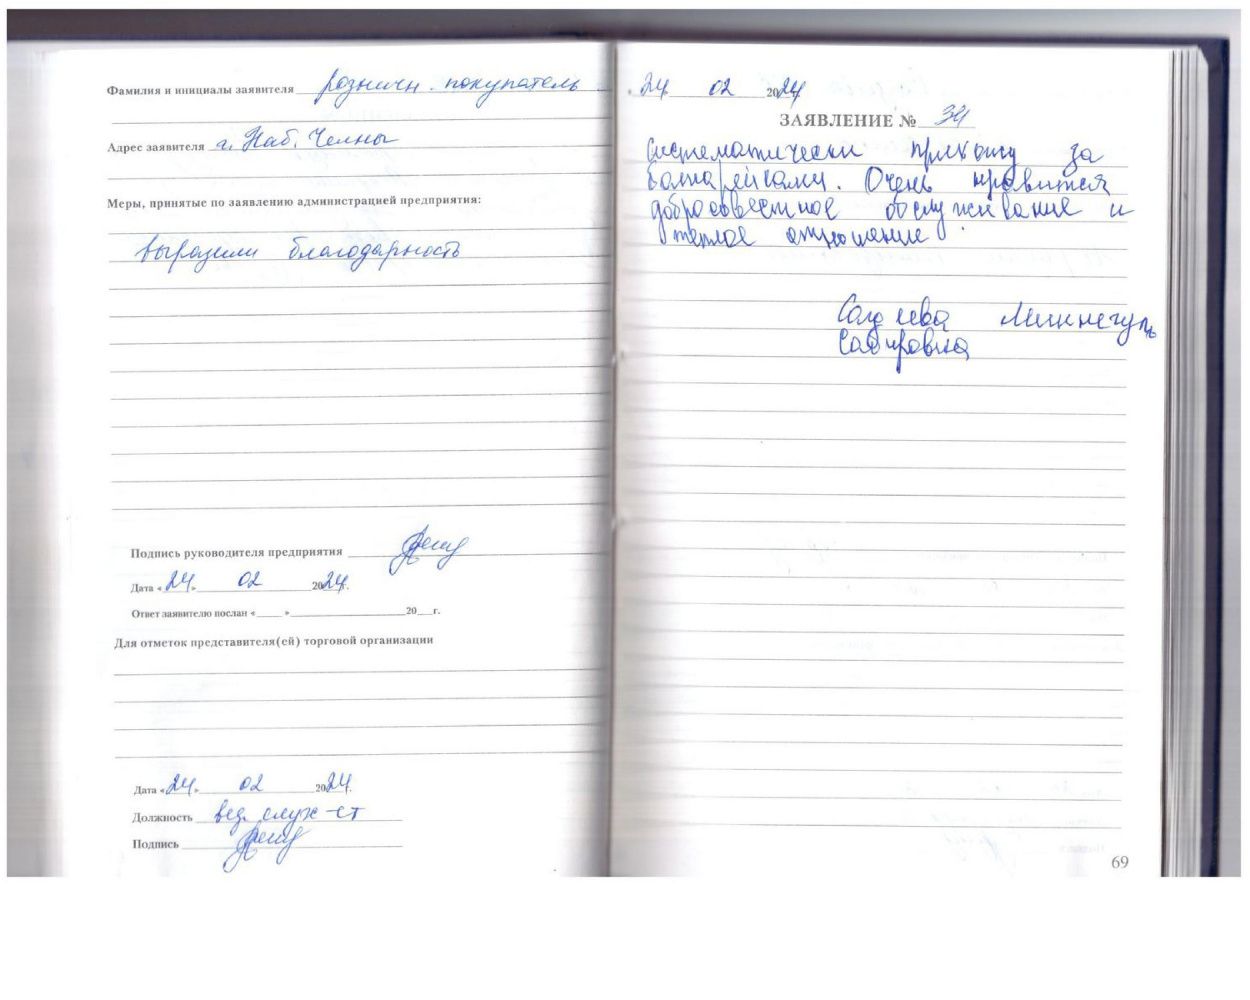 Фамилия и инициалы заявителя розничн. покупатель
Адрес заявителя г. Наб. Челны
Меры, принятые по заявлению администрацией предприятия:
выразили благодарность
Подпись руководителя предприятия
Дата «24» 02 2024г.
Ответ заявителю послан «____» ____________ 20___г.
Для отметок представителя(ей) торговой организации
Дата «24» 02 2024г.
Должность вед. служ-ст
Подпись
24 02 2024
ЗАЯВЛЕНИЕ № 34
Систематически прихожу за
батарейками. Очень нравится
добросовестное обслуживание и
теплое отношение.
Миннегуль
Сабировна
69